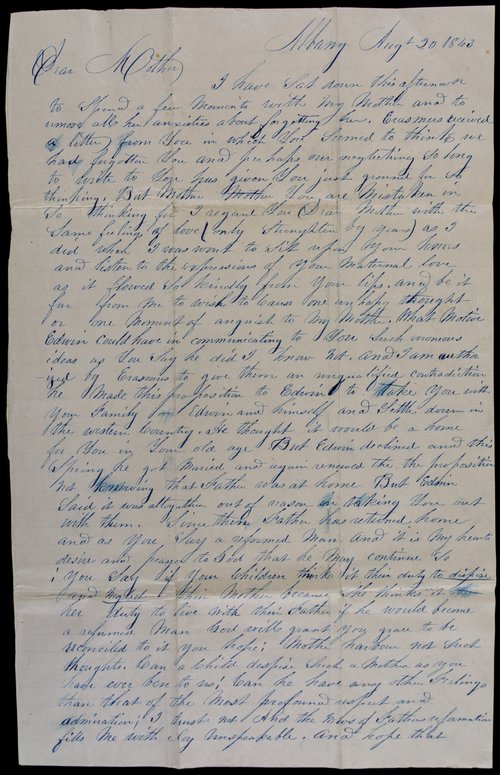 Albany Augt 20 1843
Dear Mother
I have Sat down this afternoon
to Spend a few Moments with My Mother and to
remove all her anxieties about forgetting her. Erasmus received
a letter from You in which You Seemed to think we
had forgotten You and perhaps our neglecting So long
to write to You has given You just ground for So
thinking. But Mother You are Mistaken in
So thinking for I regard You Dear Mother with the
Same feeling of love (only Strengthen by years) as I
did when I was wont to Sit upon Your knees
and listen to the expressions of Your Maternal love
as it flowed So kindly from Your lips. and be it
far from Me to wish to Cause one unhapy thought
or one Moment of anguish to My Mother. What Motive
Edwin Could have in communicating to You Such
ideas as You Say he did I know not. and I am autho
ized by Erasmus to give them an unqualified contradiction
he Made this proposition to Edwin to take You with
Your Family Edwin and himself and Settle down in
the western Country. He thought it would be a home
for You in Your old age But Edwin declined and this
Spring he got Maried and again renewed the the proposition
not knowing that Father was at home But Edwin
Said it was altogether out of reason in taking You out
with them. Since then Father has returned home
and as You Say a reformed Man and it is My hearts
desire and prayer to God that he May continue So
; You Say if Your Children think it their duty to despise
and neglect their Mother because She thinks it
her duty to live with their Father if he would become
a reformed Man God will grant you grace to be
reconciled to it you hope; Mother harbour not Such
thoughts Can a Child despise Such a Mother as you
have ever ben to us; Can he have any other Feelings
than that of the Most profound respect and
admiration; I trust not And the News of Fathers reformation
fills Me with Joy Unspeakable. And hope that